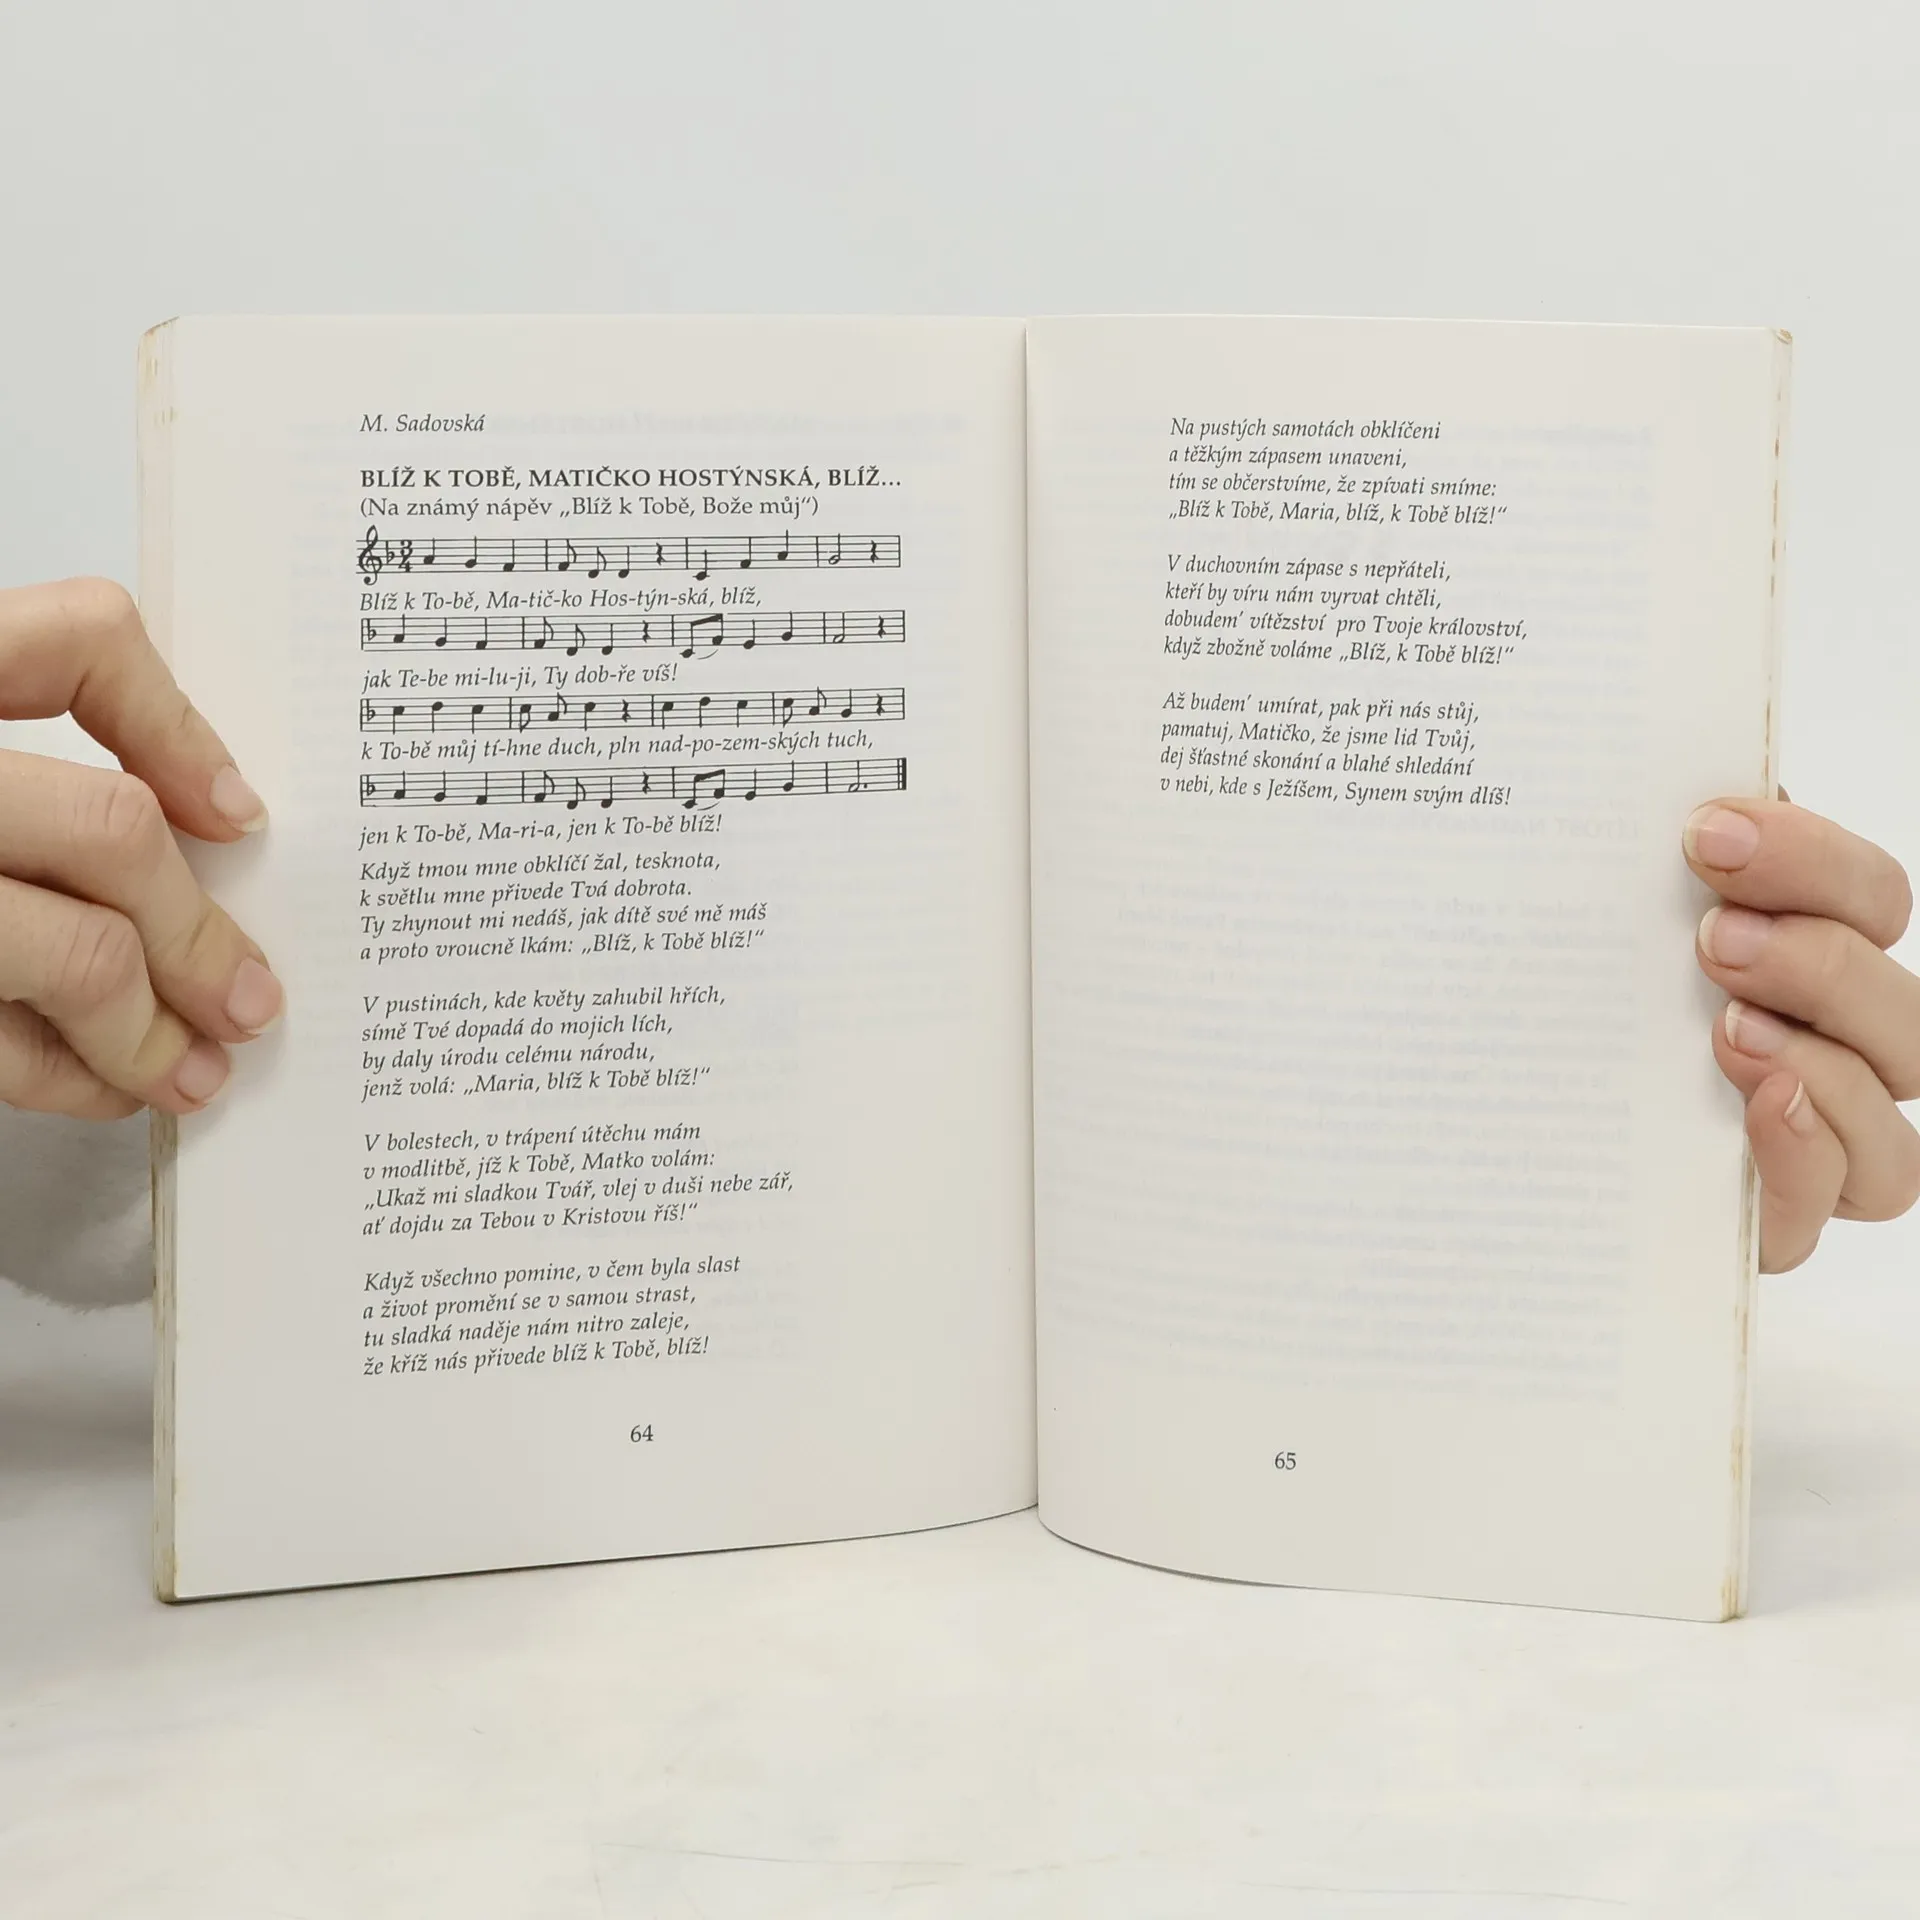 M. Sadovská
BLÍŽ K TOBĚ, MATIČKO HOSTÝNSKÁ, BLÍŽ...
(Na známý nápěv „Blíž k Tobě, Bože můj“)
3
4
Blíž k To-bě, Ma-tič-ko Hos-týn-ská, blíž,
jak Te-be mi-lu-ji, Ty dob-ře víš!
k To-bě můj tí-hne duch, pln nad-po-zem-ských tuch,
jen k To-bě, Ma-ri-a, jen k To-bě blíž!
Když tmou mne obklíčí žal, tesknota,
k světlu mne přivede Tvá dobrota.
Ty zhynout mi nedáš, jak dítě své mě máš
a proto vroucně lkám: „Blíž, k Tobě blíž!“
V pustinách, kde květy zahubil hřích,
símě Tvé dopadá do mojich lích,
by daly úrodu celému národu,
jenž volá: „Maria, blíž k Tobě blíž!“
V bolestech, v trápení útěchu mám
v modlitbě, jíž k Tobě, Matko volám:
„Ukaž mi sladkou Tvář, vlej v duši nebe zář,
ať dojdu za Tebou v Kristovu říš!“
Když všechno pomine, v čem byla slast
a život promění se v samou strast,
tu sladká naděje nám nitro zaleje,
že kříž nás přivede blíž k Tobě, blíž!
64
Na pustých samotách obklíčeni
a těžkým zápasem unaveni,
tím se občerstvíme, že zpívati smíme:
„Blíž k Tobě, Maria, blíž, k Tobě blíž!“
V duchovním zápase s nepřáteli,
kteří by víru nám vyrvat chtěli,
dobudem’ vítězství pro Tvoje království,
když zbožně voláme „Blíž, k Tobě blíž!“
Až budem’ umírat, pak při nás stůj,
pamatuj, Matičko, že jsme lid Tvůj,
dej šťastné skonání a blahé shledání
v nebi, kde s Ježíšem, Synem svým dlíš!
65